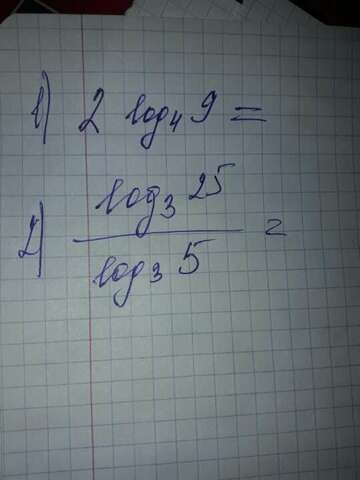 1) 2 log₄ 9 =
2) log₃ 25
log₃ 5 =